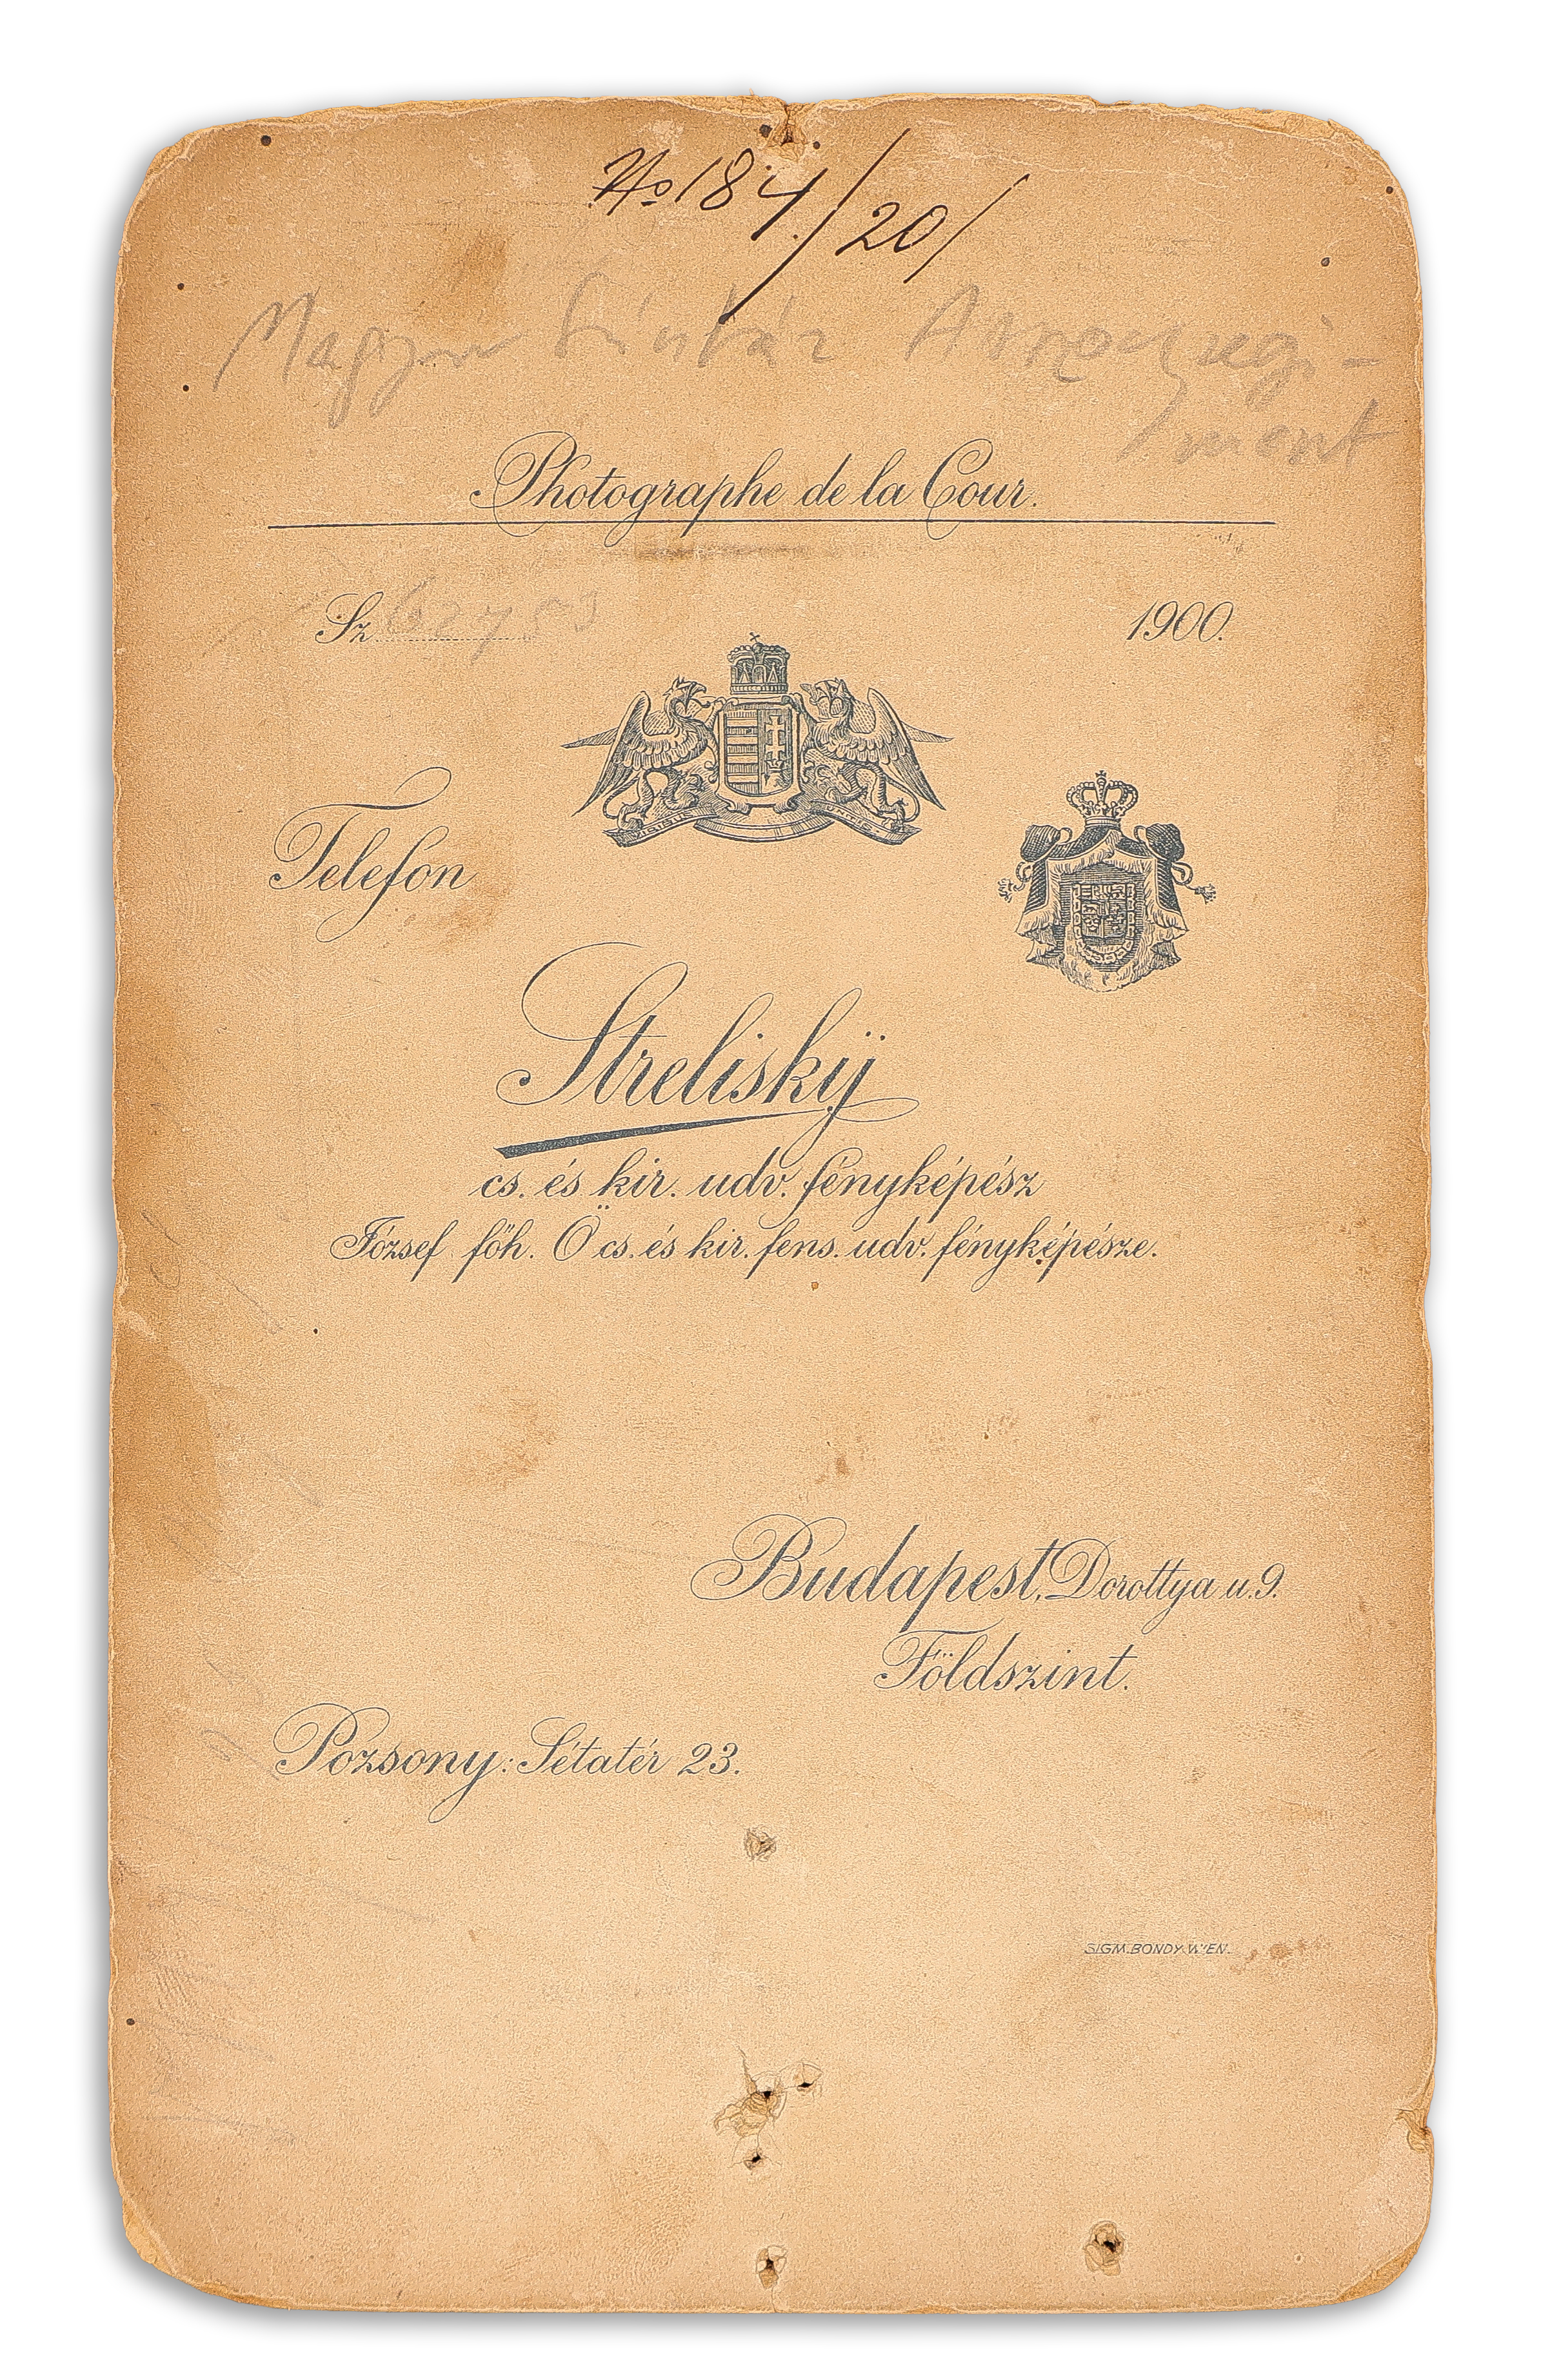 No 184/20/
Magyar
ment
Photographe de la Cour.
Sz.
1900.
Telefon
Streliskÿ
cs. és kir. udv. fényképész
József főh. Ö cs. és kir. fens. udv. fényképésze.
Budapest, Dorottya u. 9.
Földszint.
Pozsony: Sétatér 23.
SIGM. BONDY. WIEN.